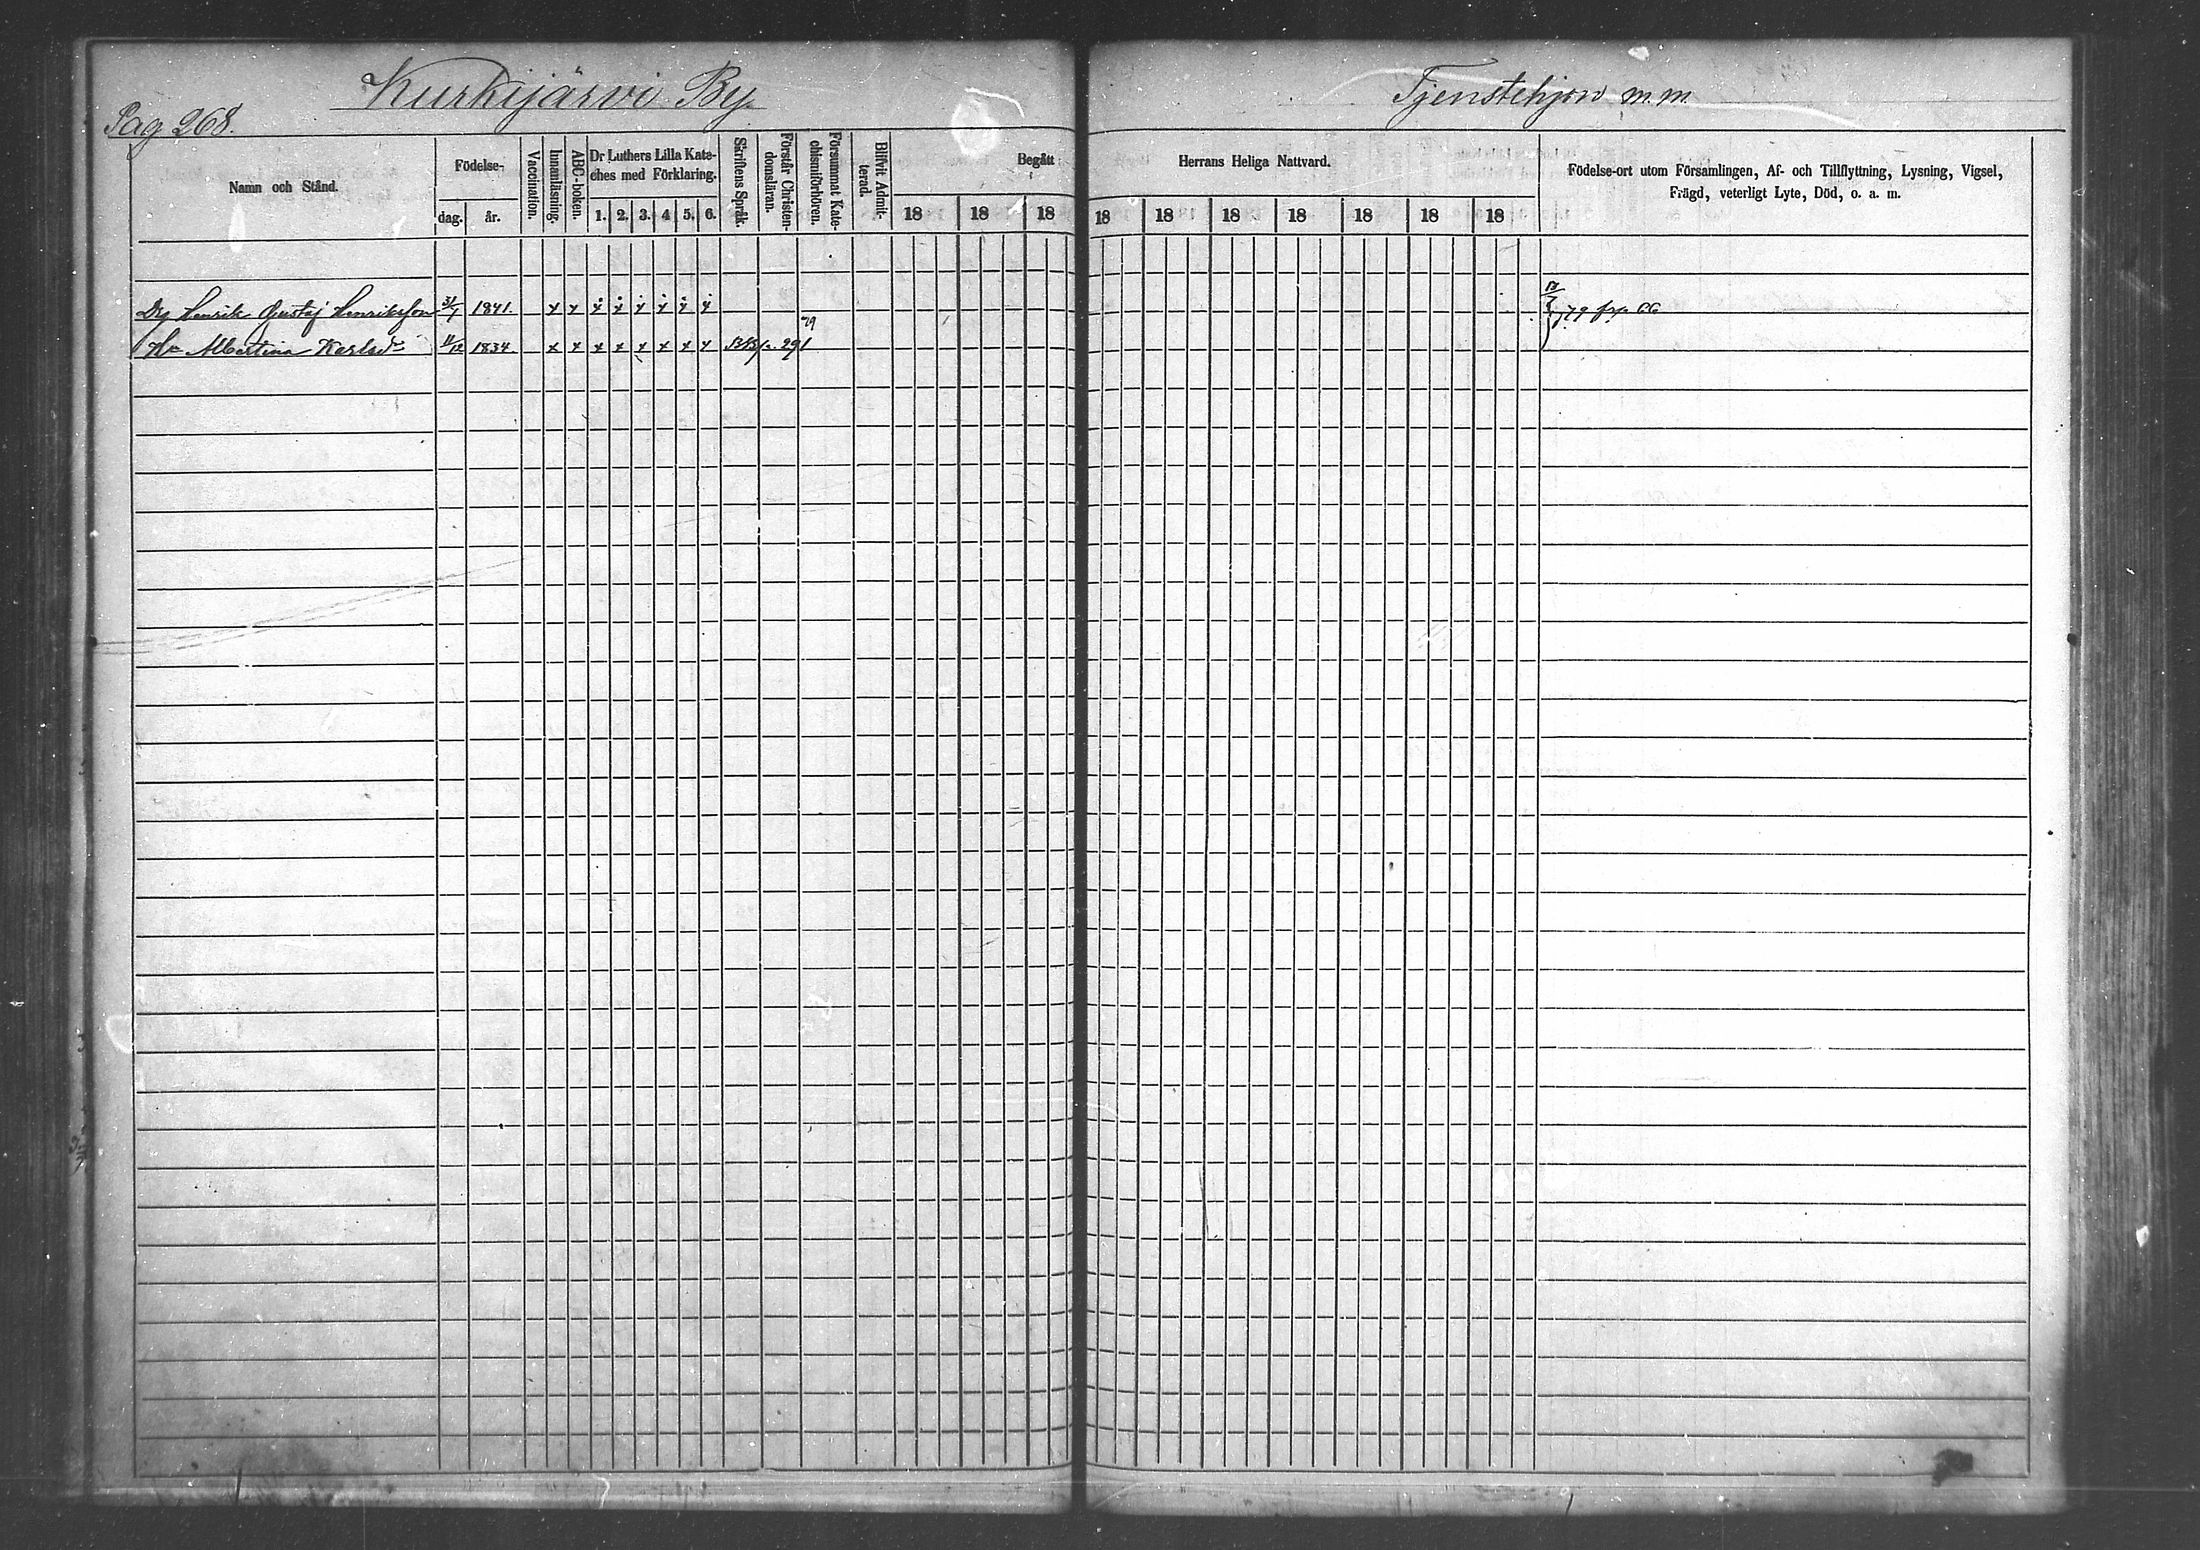 Kurkijärvi By.
Tjenstehjon m.m.
Pag 268.
Namn och Stånd.
Födelse-
dag.
år.
Vaccination.
Innanläsning.
ABC-boken.
Dr Luthers Lilla Kate-
ches med Förklaring.
1. 2. 3. 4 5. 6.
Skriftens Språk.
Förstår Christen-
domsläran.
Försummat Kate-
chismiförhören.
Blifvit Admit-
terad.
Begått
Herrans Heliga Nattvard.
18 18 18 18 18 18 18 18 18 18
Födelse-ort utom Församlingen, Af- och Tillflyttning, Lysning, Vigsel,
Frägd, veterligt Lyte, Död, o. a. m.
Drg Henrik Gustaf Henriksson 31/1 1841. x x x x x x x x
Hu Albertina Karlsdr 11/12 1834 x x x x x x x x 291 79
79 frp 66